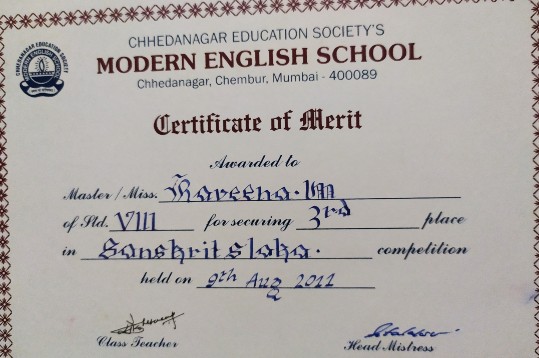 CHHEDANAGAR EDUCATION SOCIETY'S
MODERN ENGLISH SCHOOL
Chhedanagar, Chembur, Mumbai - 400089
Certificate of Merit
Awarded to
Master / Miss. Kaveena.M
of Std. VIII for securing 3rd place
in Sanskrit sloka. competition
held on 9th Aug 2022
Class Teacher Head Mistress